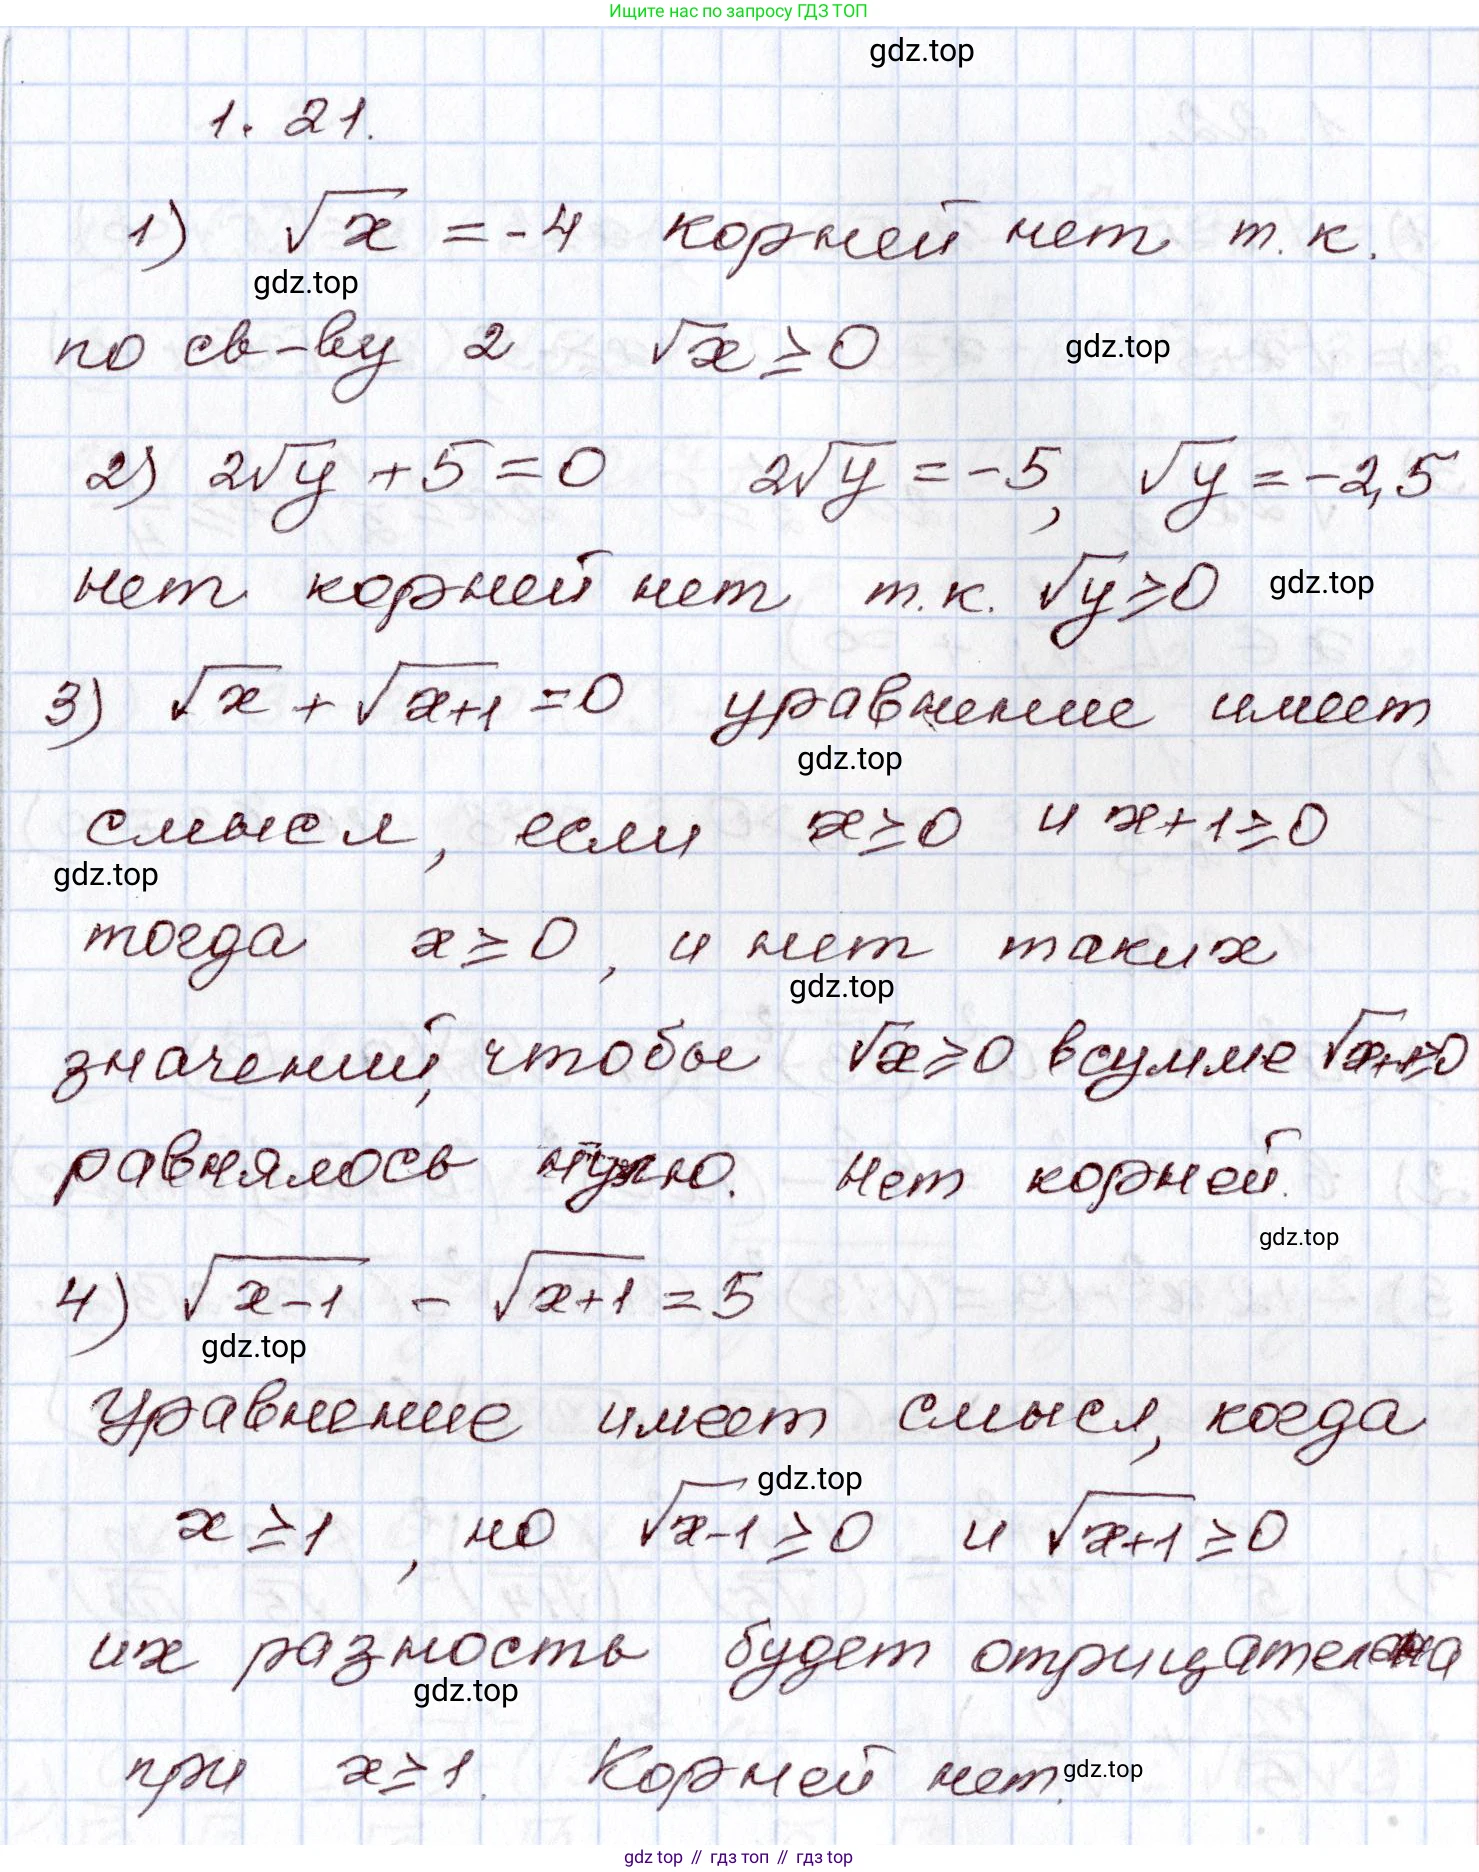 Ищите нас по запросу ГДЗ ТОП
gdz.top
1.21.
1) √x = -4 корней нет т.к.
gdz.top
по св-ву 2 √x ≥ 0
gdz.top
2) 2√y + 5 = 0 2√y = -5, √y = -2,5
нет корней нет т.к. √y ≥ 0
gdz.top
3) √x + √(x+1) = 0 уравнение имеет
gdz.top
смысл, если x ≥ 0 и x+1 ≥ 0
gdz.top
тогда x ≥ 0, и нет таких
gdz.top
значений, чтобы √x ≥ 0 в сумме √(x+1) ≥ 0
равнялось нулю. Нет корней.
gdz.top
4) √(x-1) - √(x+1) = 5
gdz.top
Уравнение имеет смысл, когда
gdz.top
x ≥ 1, но √(x-1) ≥ 0 и √(x+1) ≥ 0
их разность будет отрицательна
gdz.top
при x ≥ 1. Корней нет.
gdz.top
gdz top // гдз топ // гдз top